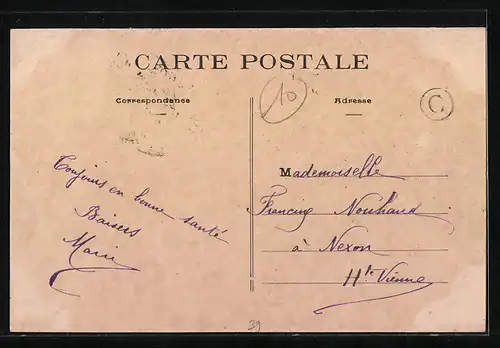 CARTE POSTALE
Correspondance
Adresse
10
C
Toujours en bonne santé
Baisers
Marie
Mademoiselle
Francine Nouhaud
à Nexon
Hte Vienne
39